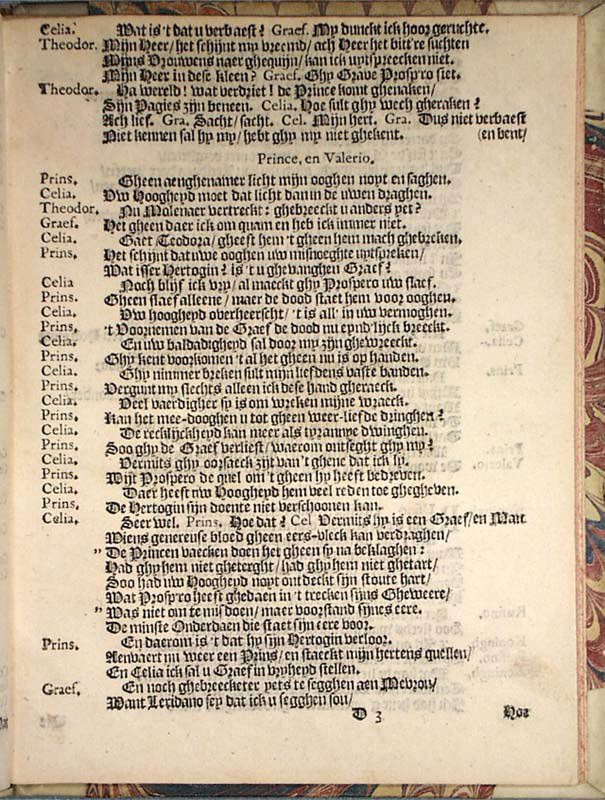 Celia. Wat is 't dat u verbaest? Graef. My dunckt ick hoor geruchte.
Theodor. Mijn Heer/ het schijnt my vreemd/ ach Heer het bitt're suchten
Mijns Vrouwens naer ghequijn/ kan ick uytspreecken niet.
Mijn Heer in dese kleen? Graef. Ghy Grave Prosp'ro siet.
Theodor. Ha wereld! wat verdriet! de Prince komt ghenaken/
Sijn Pagies zijn beneen. Celia. Hoe sult ghy wech gheraken?
Ach lief. Gra. Sacht/ sacht. Cel. Mijn hert. Gra. Dus niet verbaest
Niet kennen sal hy my/ hebt ghy my niet ghekent. (en bent/
Prince, en Valerio.
Prins. Gheen aenghenamer licht mijn ooghen noyt en saghen.
Celia. Vw Hoogheyd moet dat licht dan in de uwen draghen.
Theodor. Nu Molenaer vertreckt: ghebreeckt u anders yet?
Graef. Het gheen daer ick om quam en heb ick immer niet.
Celia. Gaet Teodora/ gheeft hem 't gheen hem mach ghebreken.
Prins. Het schijnt dat uwe ooghen uw misnoeghte uytspreken/
Wat isser Hertogin? is 't u ghevanghen Graef?
Celia Noch blijf ick vry/ al maeckt ghy Prospero uw slaef.
Prins. Gheen slaef alleene/ maer de dood staet hem voor ooghen.
Celia. Vw hoogheyd overheerscht/ 't is all' in uw vermoghen.
Prins. 't Voornemen van de Graef de dood nu eynd'lijck breeckt.
Celia. En uw baldadigheyd sal door my zijn ghewreeckt.
Prins. Ghy kent voorkomen 't al het gheen nu is op handen.
Celia. Ghy nimmer breken sult mijn liefdens vaste banden.
Prins. Vergunt my slechts alleen ick dese hand gheraeck.
Celia. Veel vaerdigher sy is om wreken mijne wraeck.
Prins. Kan het mee-dooghen u tot gheen weer-liefde dringhen?
Celia. De reck'lijckheyd kan meer als tyrannye dwinghen.
Prins. Soo ghy de Graef verliest/ waerom ontseght ghy my?
Celia. Vermits ghy oorsaeck zijt van 't ghene dat ick ly.
Prins. Wijt Prospero de quel om 't gheen hy heeft bedreven.
Celia. Daer heeft uw Hoogheyd hem veel reden toe ghegheven.
Prins. De Hertogin sijn doente niet verschoonen kan.
Celia. Seer wel. Prins. Hoe dat? Cel Vermits hy is een Graef/ en Man
Wiens genereuse bloed gheen eers-vleck kan verdraghen/
" De Princen vaecken doen het gheen sy na beklaghen:
Had ghy hem niet gheterght/ had ghy hem niet ghetart/
Soo had uw Hoogheyd noyt ontdeckt sijn stoute hart/
Wat Prosp'ro heeft ghedaen in 't trecken sijns Gheweere/
" Was niet om te misdoen/ maer voorstand sijnes eere.
De minste Onderdaen die staet sijn eere voor.
Prins. En daerom is 't dat hy sijn Hertogin verloor.
Aenvaert nu weer een Prins/ en staeckt mijn hertens quellen/
En Celia ick sal u Graef in vryheyd stellen.
Graef. En noch ghebreecketer yets te segghen aen Mevrou/
Want Leridano sey dat ick u segghen sou/
D 3 Hoe